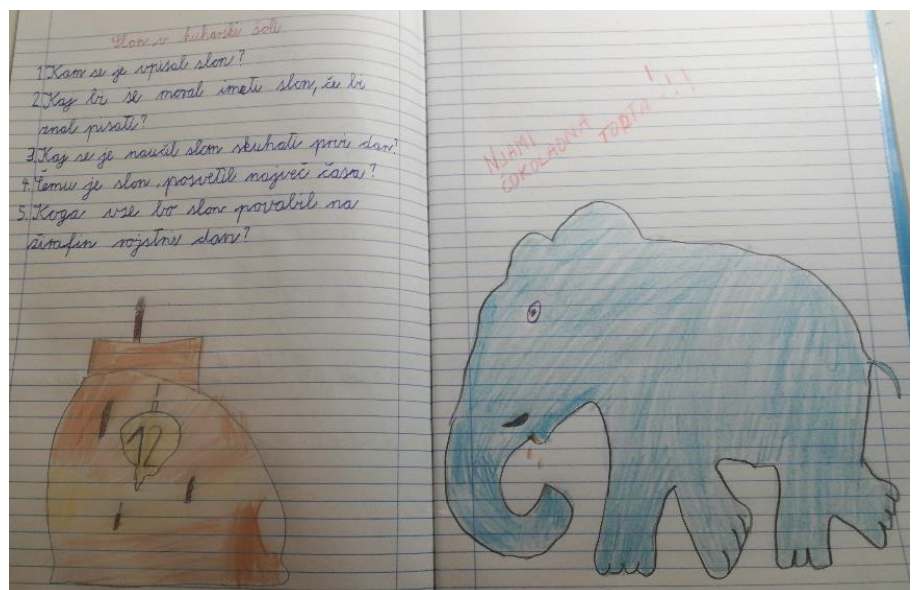 Slon v kuharski šoli
1. Kam se je vpisal slon?
2. Kaj bi se moral imeti slon, če bi
znal pisati?
3. Kaj se je naučil slon skuhati prvi dan?
4. Čemu je slon posvetil največ časa?
5. Koga vse bo slon povabil na
žirafin rojstni dan?
12
NJAMI
ČOKOLADNA TORTA...!!!